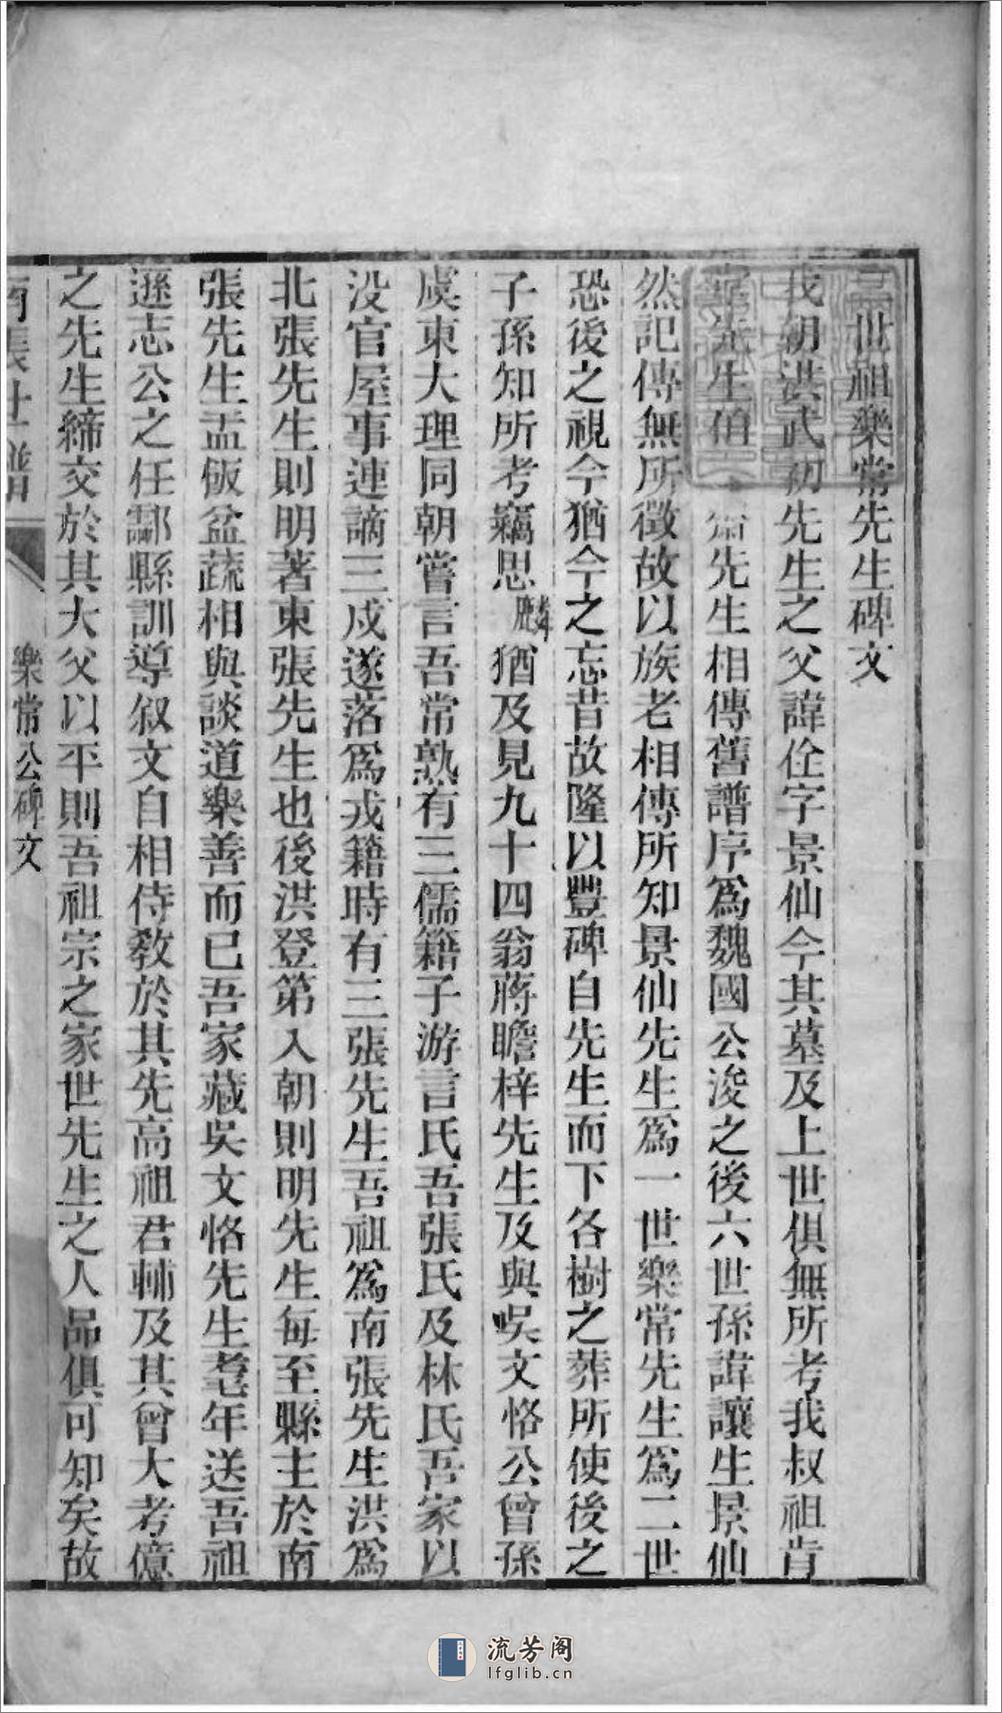 世祖樂常先生碑文
我朝洪武初先生之父諱佺字景仙今其墓及上世俱無所考我叔祖肯
先生相傳舊譜序爲魏國公浚之後六世孫諱讓生景仙
然記傳無所徵故以族老相傳所知景仙先生爲一世樂常先生爲二世
恐後之視今猶今之忘昔故隆以豐碑自先生而下各樹之葬所使後之
子孫知所考竊思 猶及見九十四翁蔣瞻梓先生及與吳文恪公曾孫
虞東大理同朝嘗言吾常熟有三儒籍子游言氏吾張氏及林氏吾家以
没官屋事連謫三戍遂落爲戎籍時有三張先生吾祖爲南張先生洪爲
北張先生則明著東張先生也後洪登第入朝則明先生每至縣主於南
張先生盂飯盆蔬相與談道樂善而已吾家藏吳文恪先生耄年送吾祖
遜志公之任酃縣訓導叙文自相侍教於其先高祖君輔及其曾大考億
之先生締交於其大父以平則吾祖宗之家世先生之人品俱可知矣故
南張世譜
樂常公碑文
流芳阁
lfglib.cn